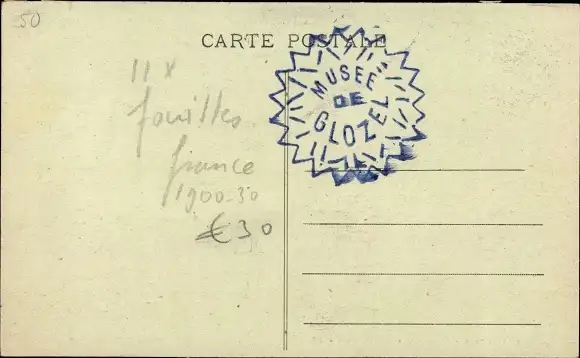 50
CARTE POSTALE
MUSEE
DE
GLOZEL
11 x
fouilles
france
1900-30
€30